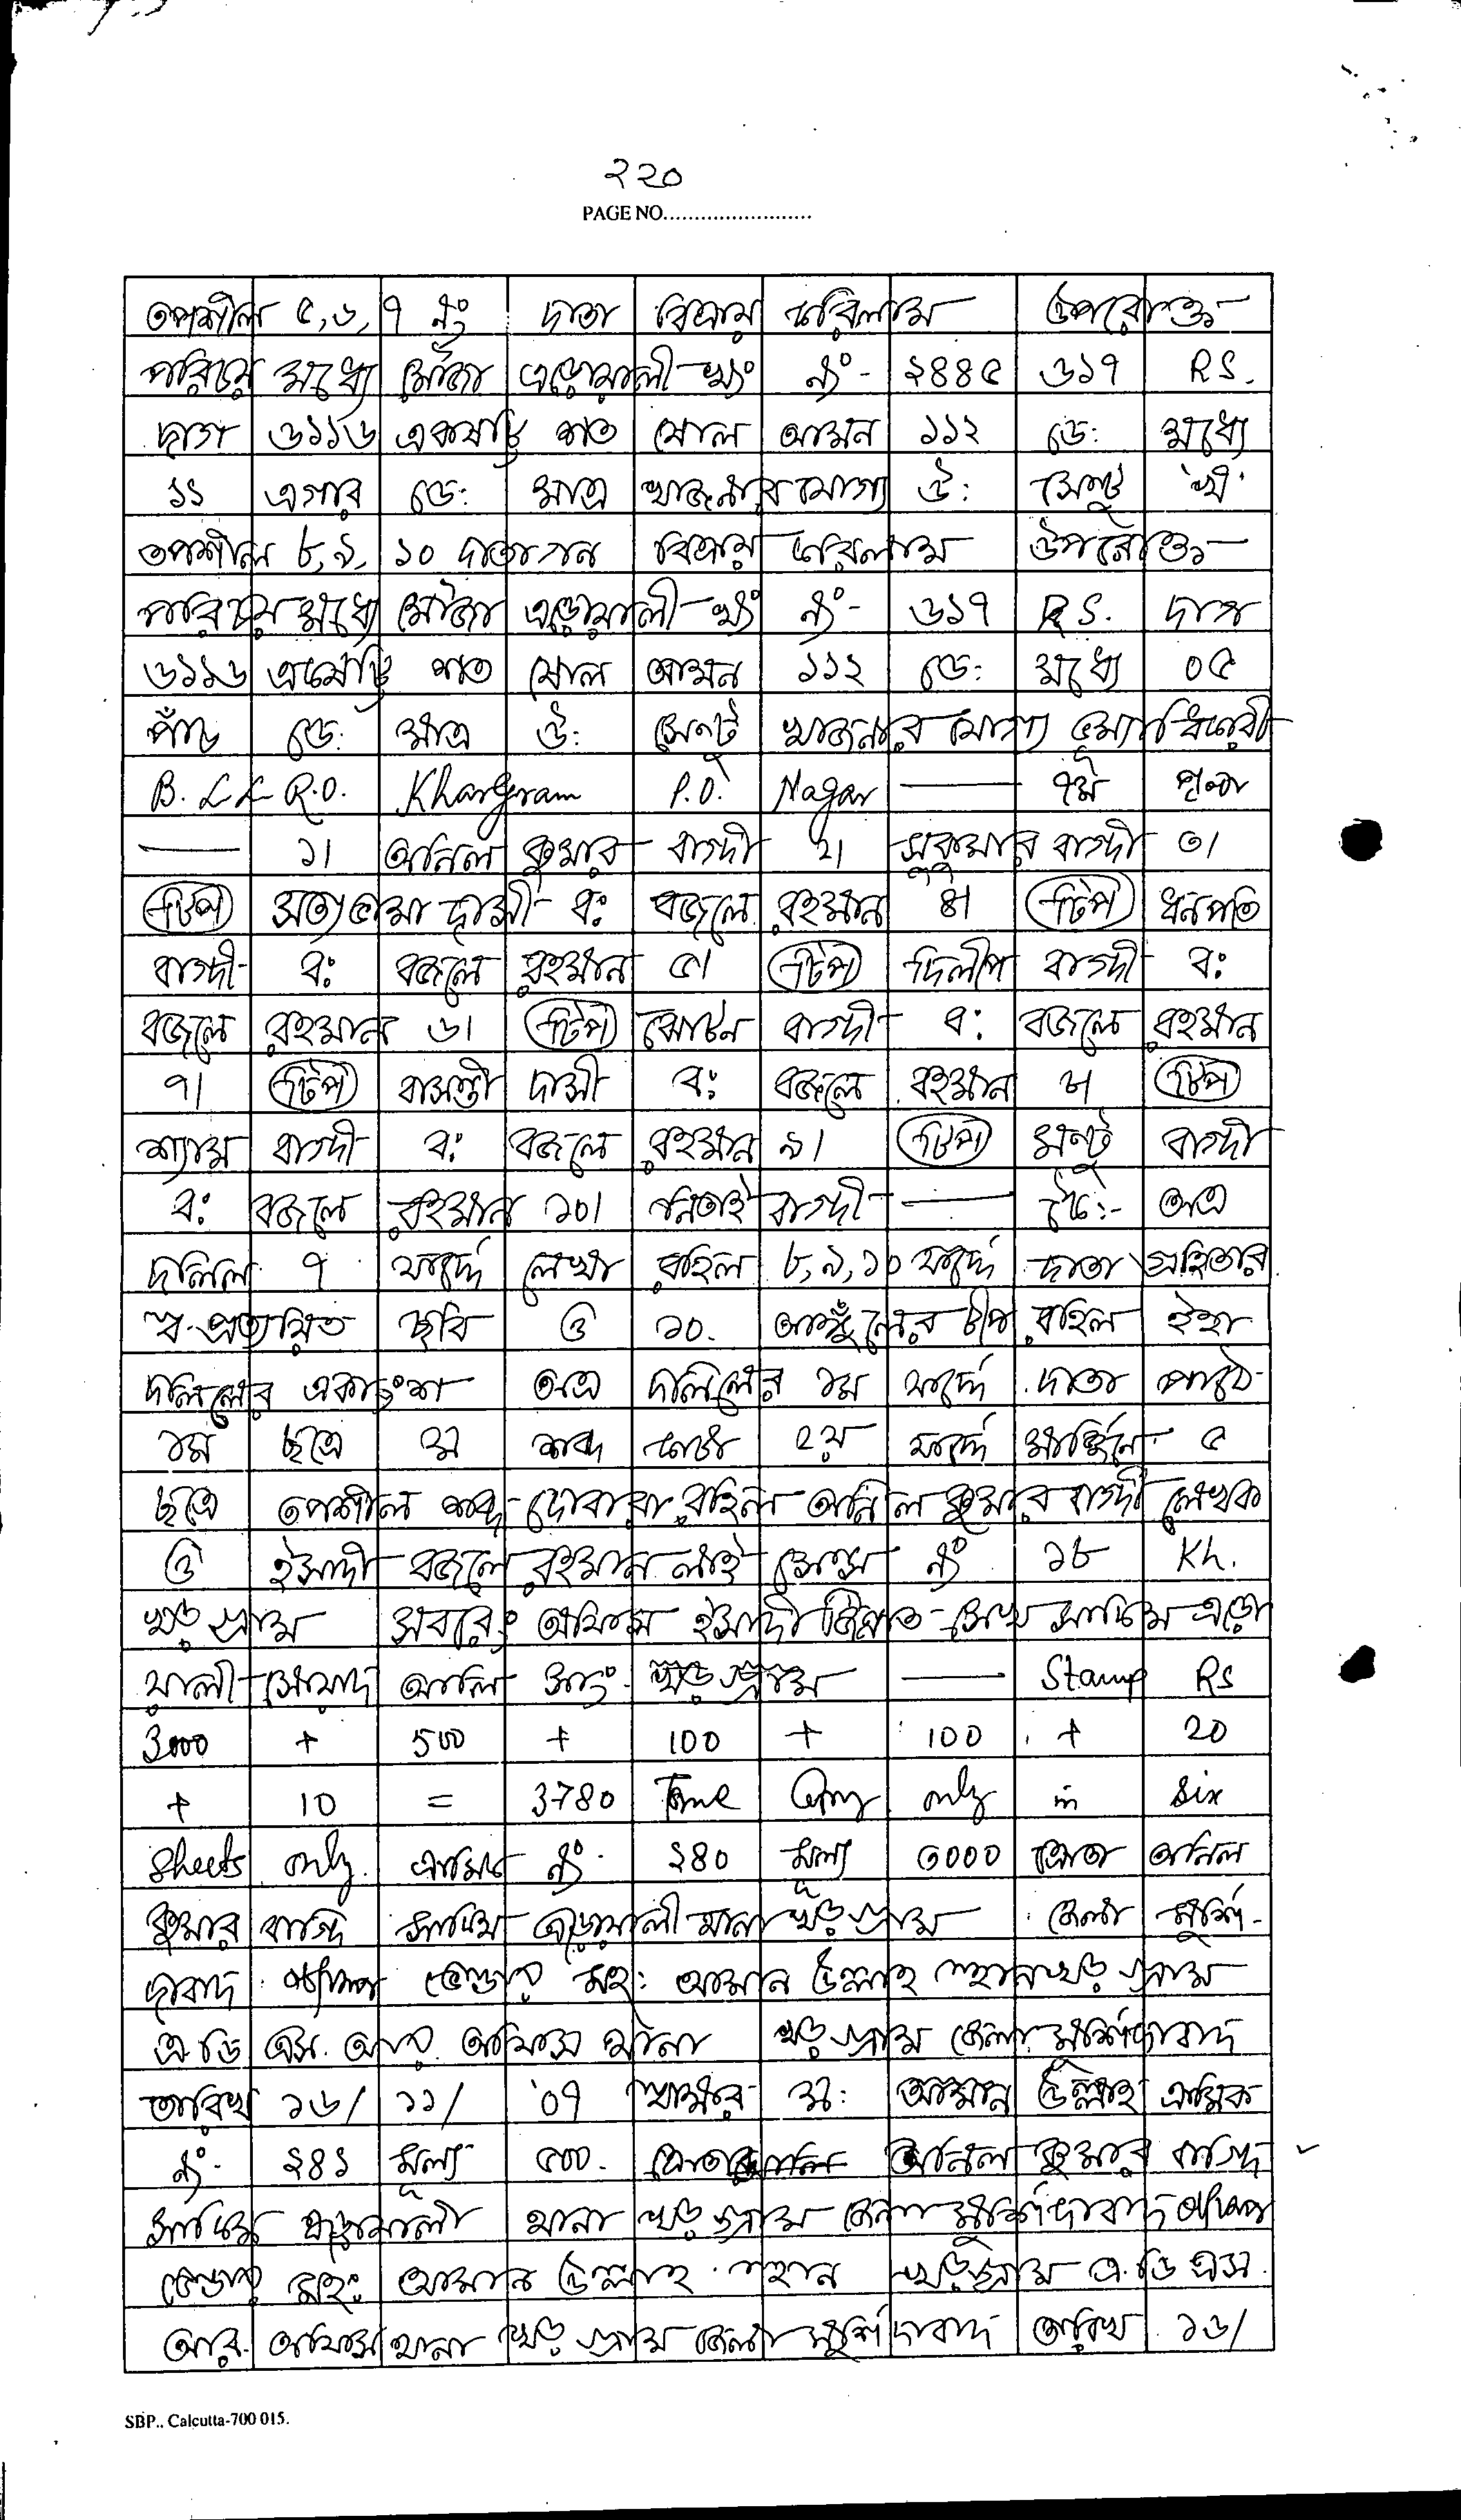 ২২০
PAGE NO.........................
তপশীল ৫,৬,৭ নং দাতা বিক্রয় করিলাম উপরোক্ত
পরিচয় মধ্যে মৌজা এড়োয়ালী খং নং- ২৪৪৫ ৬১৭ RS.
দাগ ৬১১৬ একষট্টি শত ষোল আমন ১১২ ডে: মধ্যে
১১ এগার ডে: মাত্র খাজনার যোগ্য উ: সেন্টু 'খ'
তপশীল ৮,৯,১০ দাতাগন বিক্রয় করিলাম উপরোক্ত
পরিচয় মধ্যে মৌজা এড়োয়ালী খং নং- ৬১৭ RS. দাগ
৬১১৬ একষট্টি শত ষোল আমন ১১২ ডে: মধ্যে ০৫
পাঁচ ডে: মাত্র উ: সেন্টু খাজনার যোগ্য ভূম্যাধিকারী
B. L & L R.O. Khargram P.O. Nagar — ৭ম পৃষ্ঠা
— ১। অনিল কুমার বাগ্দী ২। সুকুমার বাগ্দী ৩।
টিপ সত্যভামা দাসী ব: বজলে রহমান ৪। টিপ ধনপতি
বাগ্দী ব: বজলে রহমান ৫। টিপ দিলীপ বাগ্দী ব:
বজলে রহমান ৬। টিপ ঝোটন বাগ্দী ব: বজলে রহমান
৭। টিপ বাসন্তী দাসী ব: বজলে রহমান ৮। টিপ
শ্যাম বাগ্দী ব: বজলে রহমান ৯। টিপ মন্টু বাগ্দী
ব: বজলে রহমান ১০। নিতাই বাগ্দী — কৈ:- অত্র
দলিল ৭ ফর্দ্দে লেখা রহিল ৮,৯,১০ ফর্দ্দে দাতা গ্রহিতার
স্ব-প্রত্যয়িত ছবি ও ১০. আঙ্গুঁলের টীপ রহিল ইহা
দলিলের একাংশ অত্র দলিলের ১ম ফর্দ্দে দাতা পাঠে
১ম ছত্রে ম শব্দ কাটা ২য় ফর্দ্দে মার্জিনে ৫
ছত্রে তপশীল শব্দ দোবারা রহিল অনিল কুমার বাগ্দী লেখক
ও ইসাদী বজলে রহমান লাইসেন্স নং ১৮ Kh.
খড়গ্রাম সবরেং অফিস ইসাদী জিন্নাত সেখ সাকিম এড়ো
য়ালী সোয়াদ আলি সাং খড়গ্রাম — Stamp RS
3000 + 500 + 100 + 100 + 20
+ 10 = 3780 only in six
sheets only. ক্রমিক নং ২৪০ মূল্য ৩০০০ ক্রেতা অনিল
কুমার বাগ্দি সাকিম এড়োয়ালী থানা খড়গ্রাম জেলা মুর্শি-
দাবাদ ষ্ট্যাম্প ভেন্ডার মহ: আমান উল্লাহ স্থান খড়গ্রাম
এ.ডি এস. আর. অফিস থানা খড়গ্রাম জেলা মুর্শিদাবাদ
তারিখ ১৬/ ১১/ '০৭ স্বাক্ষর ম: আমান উল্লাহ ক্রমিক
নং- ২৪১ মূল্য ৫০০. অনিল কুমার বাগ্দি
সাকিম এড়োয়ালী থানা খড়গ্রাম জেলা মুর্শিদাবাদ ষ্ট্যাম্প
ভেন্ডার মহ: আমান উল্লাহ স্থান খড়গ্রাম এ.ডি এস.
আর. অফিস থানা খড়গ্রাম জেলা মুর্শিদাবাদ তারিখ ১৬/
SBP., Calcutta-700 015.